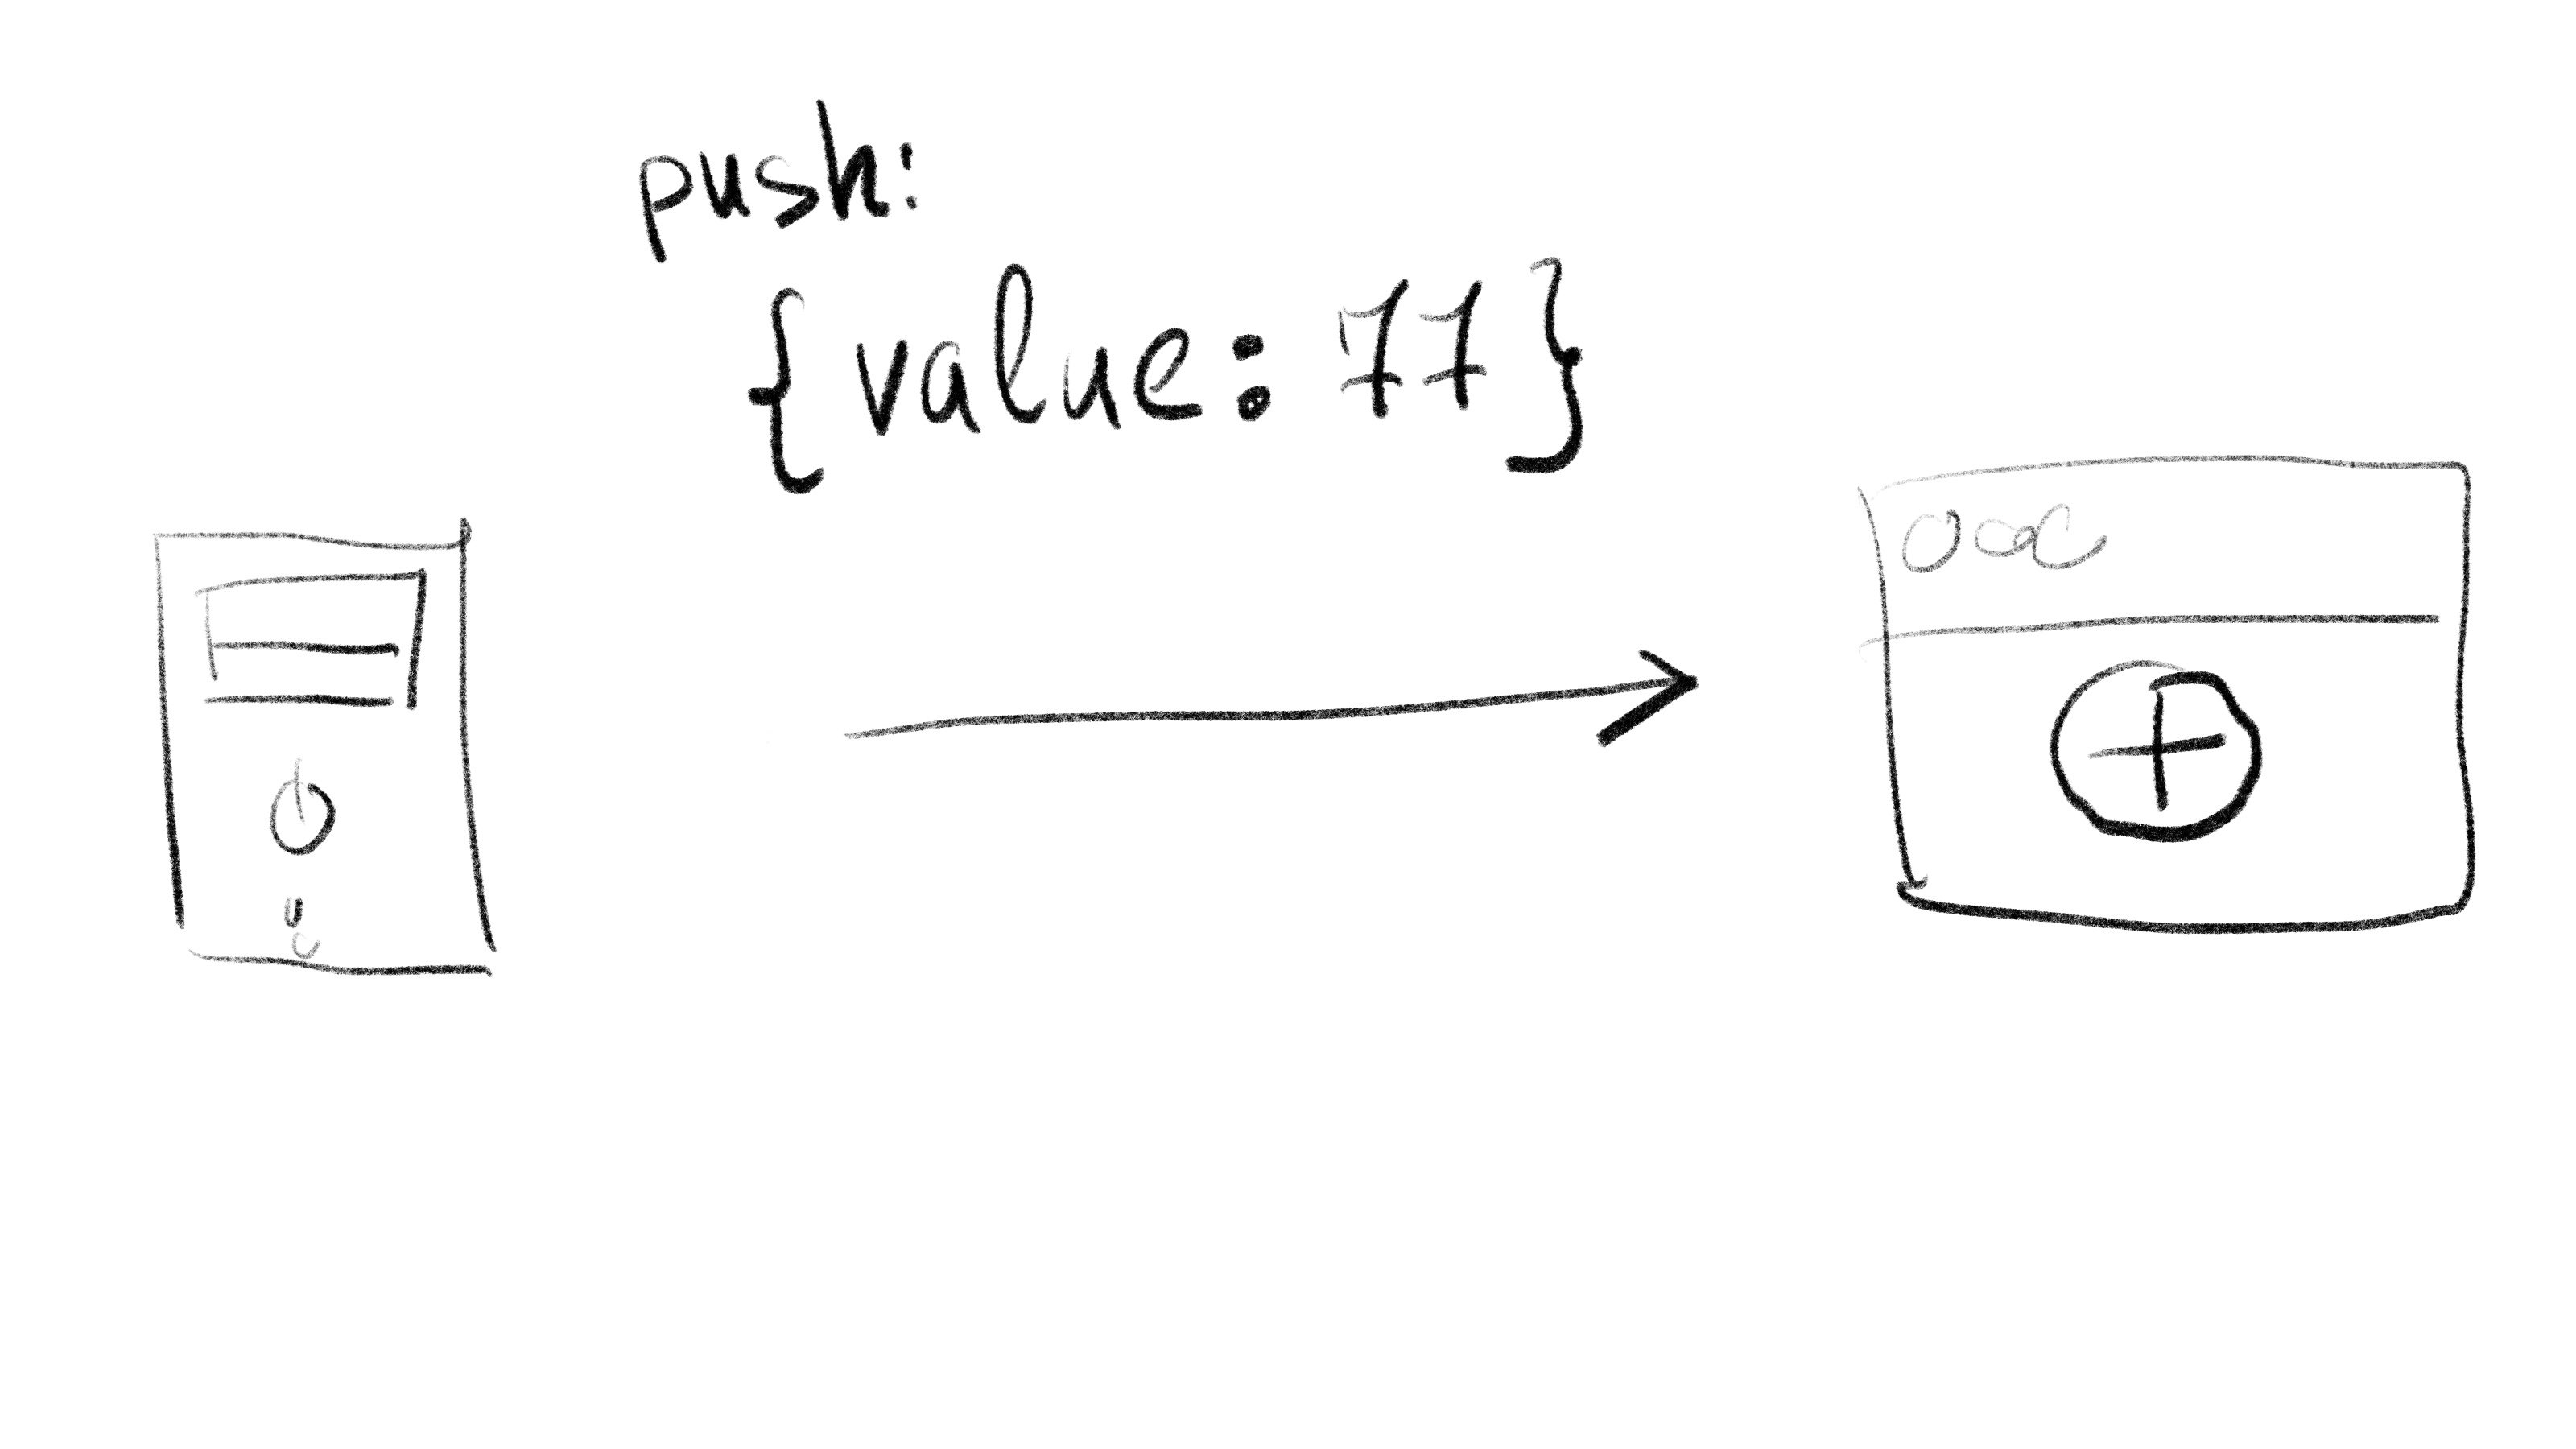 push:
{value: 77}